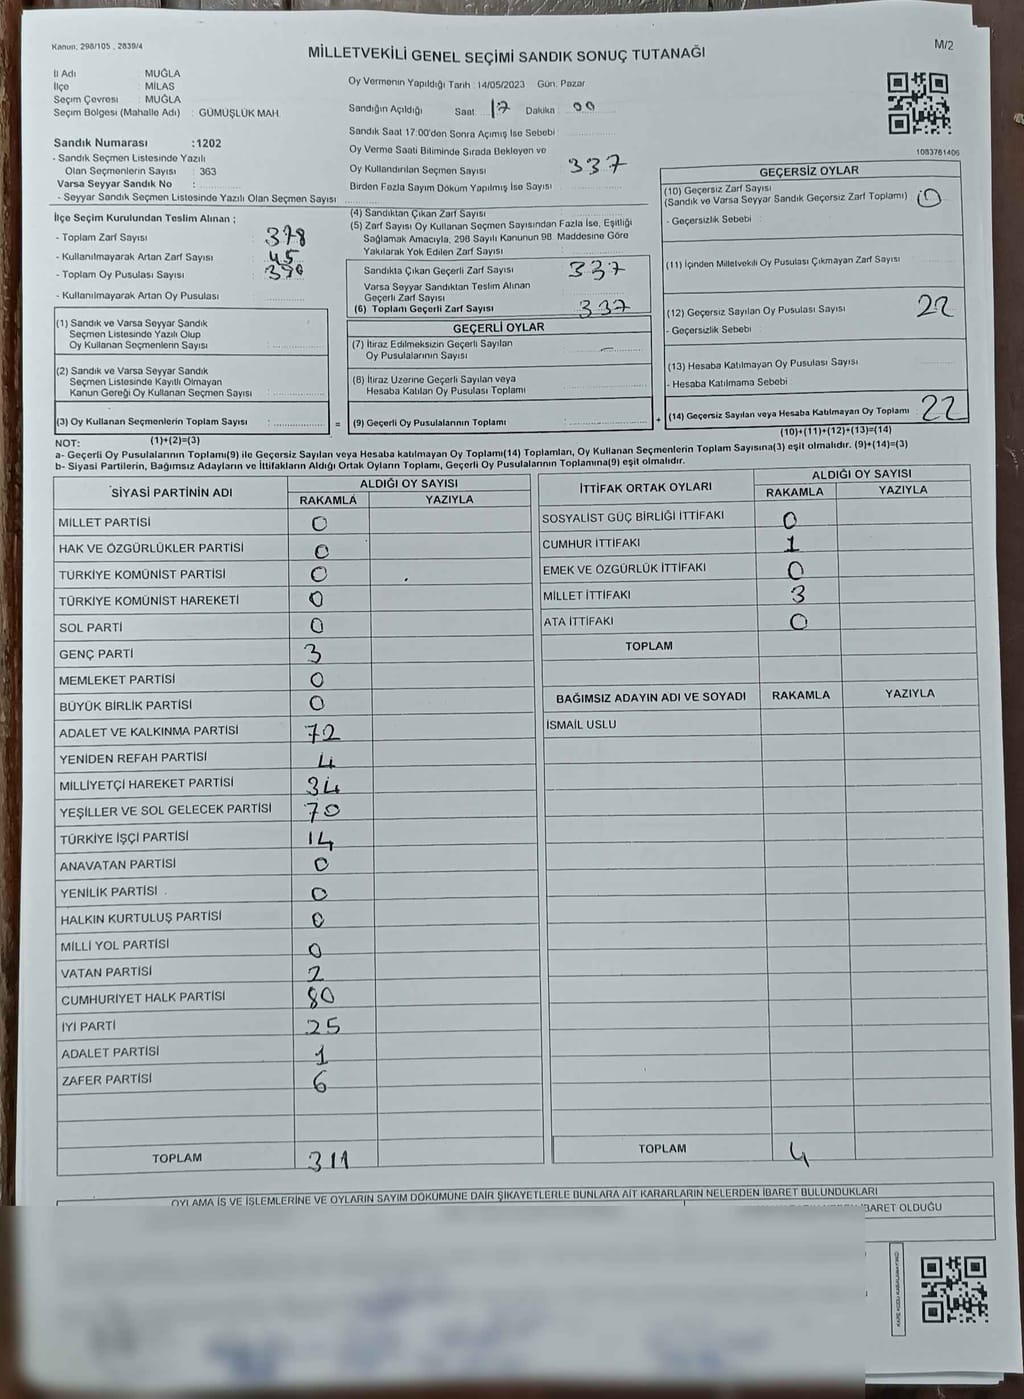 Kanun: 298/105 , 2839/4
MİLLETVEKİLİ GENEL SEÇİMİ SANDIK SONUÇ TUTANAĞI
M/2
İl Adı : MUĞLA
İlçe : MİLAS
Seçim Çevresi : MUĞLA
Seçim Bölgesi (Mahalle Adı) : GÜMÜŞLÜK MAH.
Sandık Numarası :1202
- Sandık Seçmen Listesinde Yazılı
Olan Seçmenlerin Sayısı : 363
Varsa Seyyar Sandık No :
- Seyyar Sandık Seçmen Listesinde Yazılı Olan Seçmen Sayısı :
Oy Vermenin Yapıldığı Tarih : 14/05/2023 Gün: Pazar
Sandığın Açıldığı Saat: 17 Dakika: 00
Sandık Saat 17:00'den Sonra Açımış İse Sebebi :
Oy Verme Saati Bitiminde Sırada Bekleyen ve
Oy Kullandırılan Seçmen Sayısı : 337
Birden Fazla Sayım Döküm Yapılmış İse Sayısı :
1083761406
İlçe Seçim Kurulundan Teslim Alınan ;
- Toplam Zarf Sayısı : 378
- Kullanılmayarak Artan Zarf Sayısı : 45
- Toplam Oy Pusulası Sayısı :
- Kullanılmayarak Artan Oy Pusulası :
(1) Sandık ve Varsa Seyyar Sandık
Seçmen Listesinde Yazılı Olup
Oy Kullanan Seçmenlerin Sayısı :
(2) Sandık ve Varsa Seyyar Sandık
Seçmen Listesinde Kayıtlı Olmayan
Kanun Gereği Oy Kullanan Seçmen Sayısı :
(3) Oy Kullanan Seçmenlerin Toplam Sayısı :
(1)+(2)=(3)
(4) Sandıktan Çıkan Zarf Sayısı :
(5) Zarf Sayısı Oy Kullanan Seçmen Sayısından Fazla İse, Eşitliği
Sağlamak Amacıyla, 298 Sayılı Kanunun 98. Maddesine Göre
Yakılarak Yok Edilen Zarf Sayısı :
Sandıkta Çıkan Geçerli Zarf Sayısı : 337
Varsa Seyyar Sandıktan Teslim Alınan
Geçerli Zarf Sayısı :
(6) Toplam Geçerli Zarf Sayısı : 337
GEÇERLİ OYLAR
(7) İtiraz Edilmeksizin Geçerli Sayılan
Oy Pusulalarının Sayısı :
(8) İtiraz Üzerine Geçerli Sayılan veya
Hesaba Katılan Oy Pusulası Toplamı :
= (9) Geçerli Oy Pusulalarının Toplamı :
GEÇERSİZ OYLAR
(10) Geçersiz Zarf Sayısı : 0
(Sandık ve Varsa Seyyar Sandık Geçersiz Zarf Toplamı)
- Geçersizlik Sebebi :
(11) İçinden Milletvekili Oy Pusulası Çıkmayan Zarf Sayısı :
(12) Geçersiz Sayılan Oy Pusulası Sayısı : 22
- Geçersizlik Sebebi :
(13) Hesaba Katılmayan Oy Pusulası Sayısı :
- Hesaba Katılmama Sebebi :
+ (14) Geçersiz Sayılan veya Hesaba Katılmayan Oy Toplamı : 22
(10)+(11)+(12)+(13)=(14)
NOT:
a- Geçerli Oy Pusulalarının Toplamı(9) ile Geçersiz Sayılan veya Hesaba katılmayan Oy Toplamı(14) Toplamları, Oy Kullanan Seçmenlerin Toplam Sayısına(3) eşit olmalıdır. (9)+(14)=(3)
b- Siyasi Partilerin, Bağımsız Adayların ve İttifakların Aldığı Ortak Oyların Toplamı, Geçerli Oy Pusulalarının Toplamına(9) eşit olmalıdır.
SİYASİ PARTİNİN ADI ALDIĞI OY SAYISI
RAKAMLA YAZIYLA
MİLLET PARTİSİ 0
HAK VE ÖZGÜRLÜKLER PARTİSİ 0
TÜRKİYE KOMÜNİST PARTİSİ 0
TÜRKİYE KOMÜNİST HAREKETİ 0
SOL PARTİ 0
GENÇ PARTİ 3
MEMLEKET PARTİSİ 0
BÜYÜK BİRLİK PARTİSİ 0
ADALET VE KALKINMA PARTİSİ 72
YENİDEN REFAH PARTİSİ 4
MİLLİYETÇİ HAREKET PARTİSİ 34
YEŞİLLER VE SOL GELECEK PARTİSİ 70
TÜRKİYE İŞÇİ PARTİSİ 14
ANAVATAN PARTİSİ 0
YENİLİK PARTİSİ 0
HALKIN KURTULUŞ PARTİSİ 0
MİLLİ YOL PARTİSİ 0
VATAN PARTİSİ 2
CUMHURİYET HALK PARTİSİ 80
İYİ PARTİ 25
ADALET PARTİSİ 1
ZAFER PARTİSİ 6
TOPLAM 311
İTTİFAK ORTAK OYLARI ALDIĞI OY SAYISI
RAKAMLA YAZIYLA
SOSYALİST GÜÇ BİRLİĞİ İTTİFAKI 0
CUMHUR İTTİFAKI 1
EMEK VE ÖZGÜRLÜK İTTİFAKI 0
MİLLET İTTİFAKI 3
ATA İTTİFAKI 0
TOPLAM
BAĞIMSIZ ADAYIN ADI VE SOYADI RAKAMLA YAZIYLA
İSMAİL USLU
TOPLAM 4
OYLAMA İŞ VE İŞLEMLERİNE VE OYLARIN SAYIM DÖKÜMÜNE DAİR ŞİKAYETLERLE BUNLARA AİT KARARLARIN NELERDEN İBARET BULUNDUKLARI
İBARET OLDUĞU